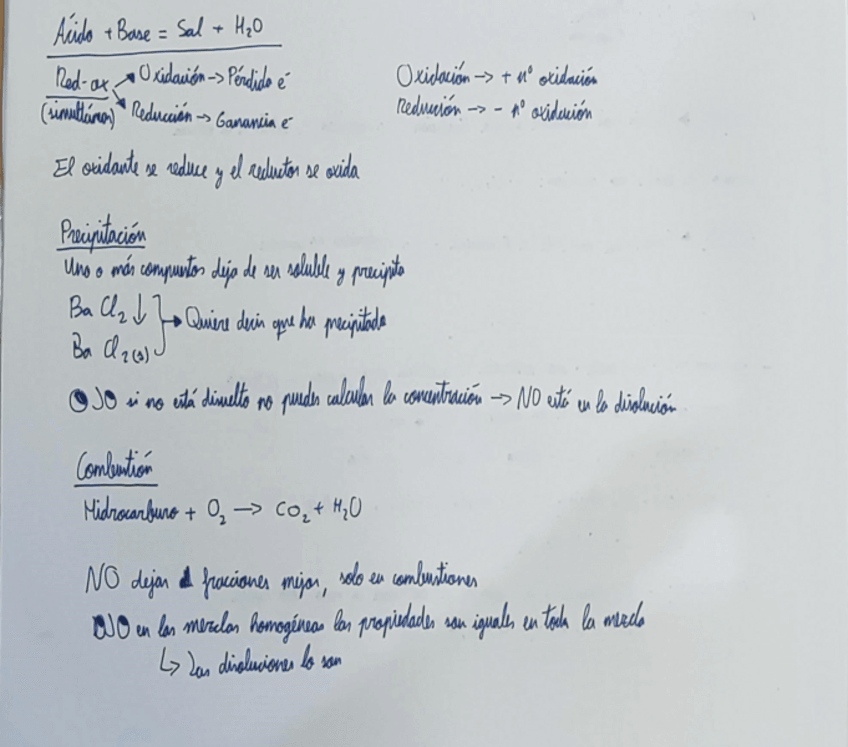 Ácido + Base = Sal + H₂O
Red-ox → Oxidación -> Pérdida e⁻
(simultáneos) → Reducción -> Ganancia e⁻
Oxidación -> + nº oxidación
Reducción -> - nº oxidación
El oxidante se reduce y el reductor se oxida
Precipitación
Uno o más compuestos deja de ser soluble y precipita
Ba Cl₂ ↓
Ba Cl₂(s)
→ Quiere decir que ha precipitado
OJO si no está disuelto no puedes calcular la concentración -> NO está en la disolución
Combustión
Hidrocarburo + O₂ -> CO₂ + H₂O
NO dejar fracciones mejor, solo en combustiones
OJO en las mezclas homogéneas las propiedades son iguales en toda la mezcla
↳ Las disoluciones lo son